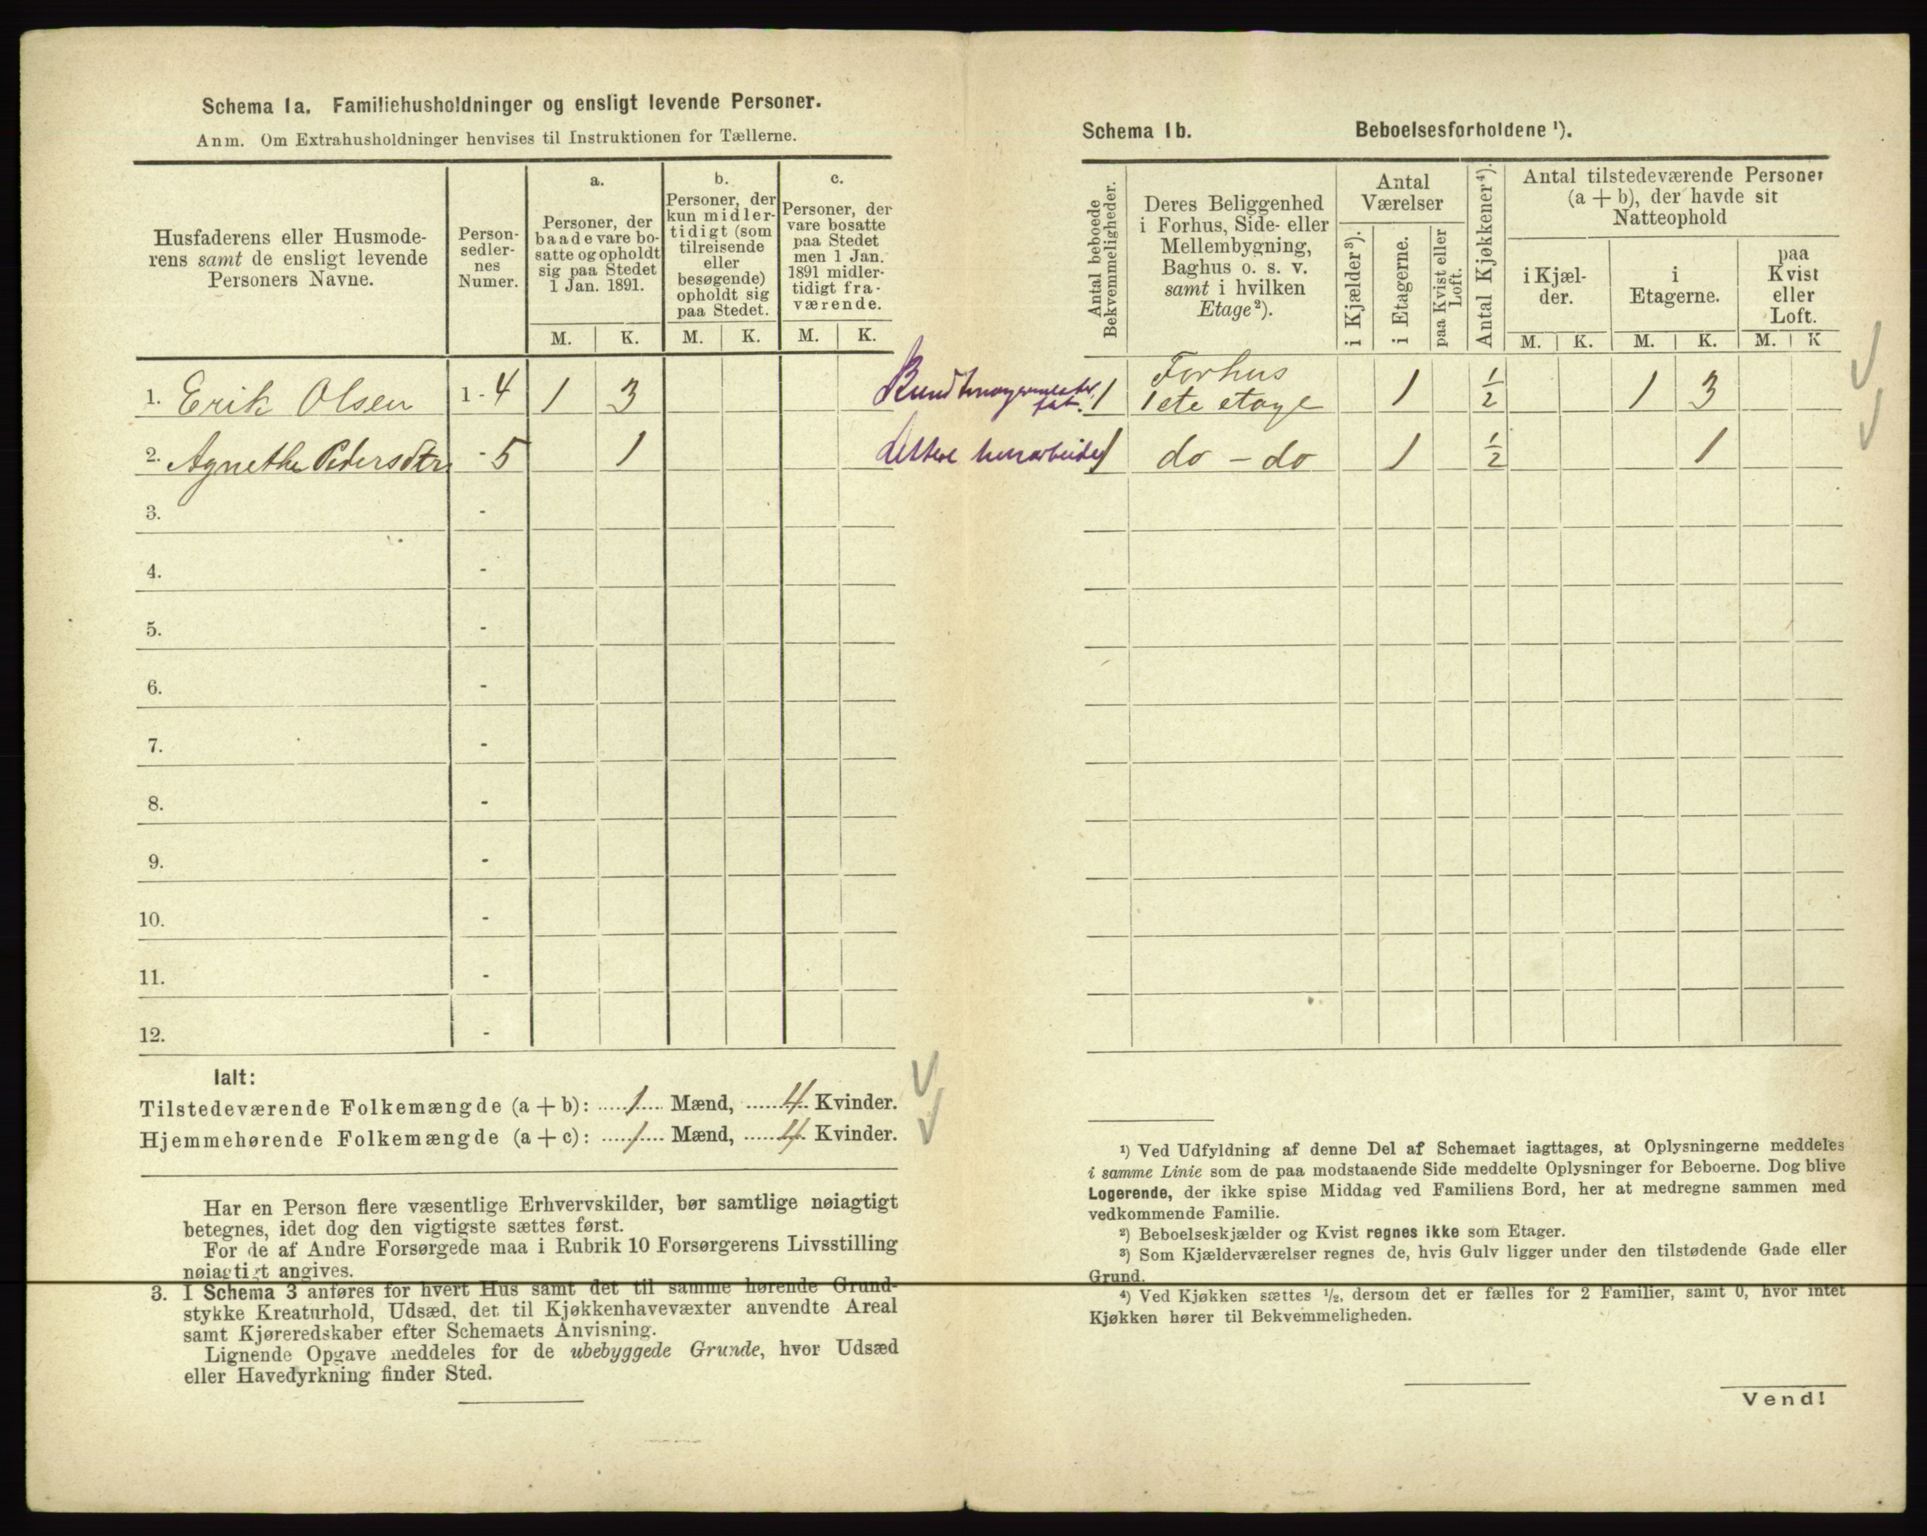 Schema 1a. Familiehusholdninger og ensligt levende Personer.
Anm. Om Extrahusholdninger henvises til Instruktionen for Tællerne.
Husfaderens eller Husmoderens samt de ensligt levende Personers Navne.
Person-sedlernes Numer.
a.
Personer, der baade vare bosatte og opholdt sig paa Stedet 1 Jan. 1891.
b.
Personer, der kun midlertidigt (som tilreisende eller besøgende) opholdt sig paa Stedet.
c.
Personer, der vare bosatte paa Stedet men 1 Jan. 1891 midlertidigt fraværende.
M. K. M. K. M. K.
1. Erik Olsen 1-4 1 3
2. Agnethe Pedersdtr -5 1
3. -
4. -
5. -
6. -
7. -
8. -
9. -
10. -
11. -
12. -
Ialt:
Tilstedeværende Folkemængde (a + b): 1 Mænd, 4 Kvinder.
Hjemmehørende Folkemængde (a + c): 1 Mænd, 4 Kvinder.
Har en Person flere væsentlige Erhvervskilder, bør samtlige nøiagtigt
betegnes, idet dog den vigtigste sættes først.
For de af Andre Forsørgede maa i Rubrik 10 Forsørgerens Livsstilling
nøiagtigt angives.
3. I Schema 3 anføres for hvert Hus samt det til samme hørende Grund-
stykke Kreaturhold, Udsæd, det til Kjøkkenhavevæxter anvendte Areal
samt Kjøreredskaber efter Schemaets Anvisning.
Lignende Opgave meddeles for de ubebyggede Grunde, hvor Udsæd
eller Havedyrkning finder Sted.
Schema 1b. Beboelsesforholdene ¹).
Antal beboede Bekvemmeligheder.
Deres Beliggenhed i Forhus, Side- eller Mellembygning, Baghus o. s. v. samt i hvilken Etage ²).
Antal Værelser
i Kjælder ³).
i Etagerne.
paa Kvist eller Loft.
Antal Kjøkkener ⁴).
Antal tilstedeværende Personer (a + b), der havde sit Natteophold
i Kjælder.
i Etagerne.
paa Kvist eller Loft.
M. K. M. K. M. K
1 Forhus
1ete etage 1 ½ 1 3
1 do - do 1 ½ 1
¹) Ved Udfyldning af denne Del af Schemaet iagttages, at Oplysningerne meddeles
i samme Linie som de paa modstaaende Side meddelte Oplysninger for Beboerne. Dog blive
Logerende, der ikke spise Middag ved Familiens Bord, her at medregne sammen med
vedkommende Familie.
²) Beboelseskjælder og Kvist regnes ikke som Etager.
³) Som Kjælderværelser regnes de, hvis Gulv ligger under den tilstødende Gade eller
Grund.
⁴) Ved Kjøkken sættes ½, dersom det er fælles for 2 Familier, samt 0, hvor intet
Kjøkken hører til Bekvemmeligheden.
Vend!